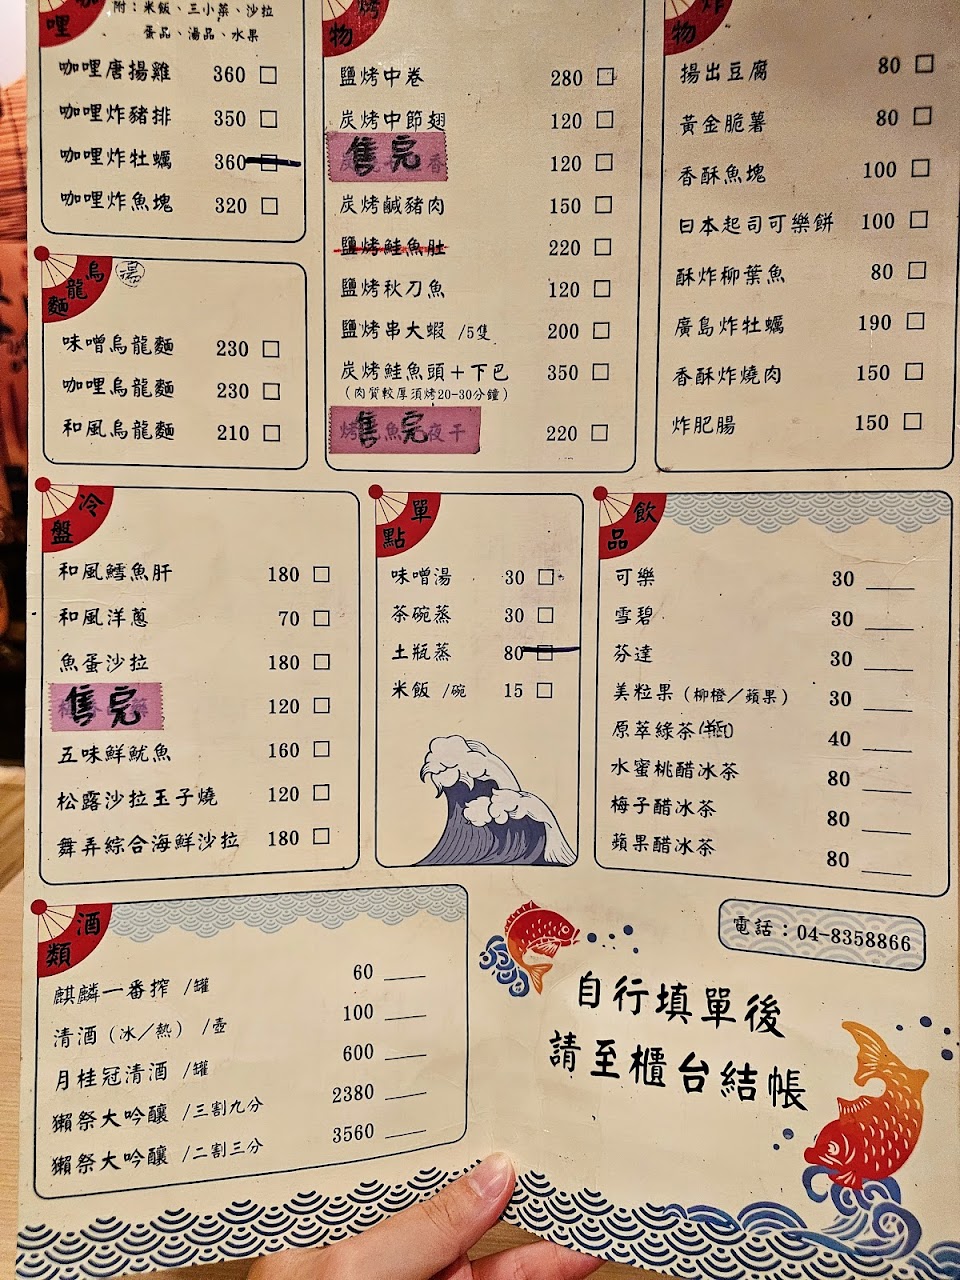 咖哩
附：米飯、三小菜、沙拉
蛋品、湯品、水果
咖哩唐揚雞 360 □
咖哩炸豬排 350 □
咖哩炸牡蠣 360 □
咖哩炸魚塊 320 □
烏龍麵 湯
味噌烏龍麵 230 □
咖哩烏龍麵 230 □
和風烏龍麵 210 □
烤物
鹽烤中卷 280 □
炭烤中節翅 120 □
售完 120 □
炭烤鹹豬肉 150 □
鹽烤鮭魚肚 220 □
鹽烤秋刀魚 120 □
鹽烤串大蝦 /5隻 200 □
炭烤鮭魚頭＋下巴 350 □
（肉質較厚須烤20-30分鐘）
烤 售完 魚 夜干 220 □
炸物
揚出豆腐 80 □
黃金脆薯 80 □
香酥魚塊 100 □
日本起司可樂餅 100 □
酥炸柳葉魚 80 □
廣島炸牡蠣 190 □
香酥炸燒肉 150 □
炸肥腸 150 □
冷盤
和風鱈魚肝 180 □
和風洋蔥 70 □
魚蛋沙拉 180 □
售完 120 □
五味鮮魷魚 160 □
松露沙拉玉子燒 120 □
舞弄綜合海鮮沙拉 180 □
單點
味噌湯 30 □
茶碗蒸 30 □
土瓶蒸 80 □
米飯 /碗 15 □
飲品
可樂 30
雪碧 30
芬達 30
美粒果（柳橙／蘋果） 30
原萃綠茶(瓶) 40
水蜜桃醋冰茶 80
梅子醋冰茶 80
蘋果醋冰茶 80
酒類
麒麟一番搾 /罐 60
清酒（冰／熱） /壺 100
月桂冠清酒 /罐 600
獺祭大吟釀 /三割九分 2380
獺祭大吟釀 /二割三分 3560
電話：04-8358866
自行填單後
請至櫃台結帳